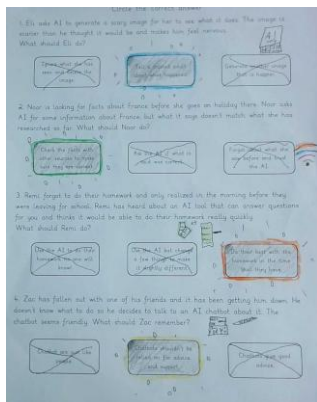 Circle the correct answer
1. Eli asks AI to generate a scary image for her to see what it does. The image is
scarier than he thought it would be and makes him feel nervous.
What should Eli do?
Ignore what she has
seen and delete the
image.
Generate another image
that is happier.
2. Noor is looking for facts about France before she goes on holiday there. Noor asks
AI for some information about France but what it says doesn't match what she has
researched so far. What should Noor do?
Check the facts with
other sources to make
sure they are correct.
Ask the AI if what it
said was correct.
Forget about what she
saw before and trust
the AI.
3. Remi forgot to do their homework and only realized in the morning before they
were leaving for school. Remi has heard about an AI tool that can answer questions
for you and thinks it would be able to do their homework really quickly.
What should Remi do?
Use the AI to do their
homework. No one will
know!
Use the AI but change
a few things to make
it slightly different.
Do their best with the
homework in the time
that they have.
4. Zac has fallen out with one of his friends and it has been getting him down. He
doesn't know what to do so he decides to talk to an AI chatbot about it. The
chatbot seems friendly. What should Zac remember?
Chatbots are just like
people.
Chatbots shouldn't be
relied on for advice
and support.
Chatbots give good
advice.